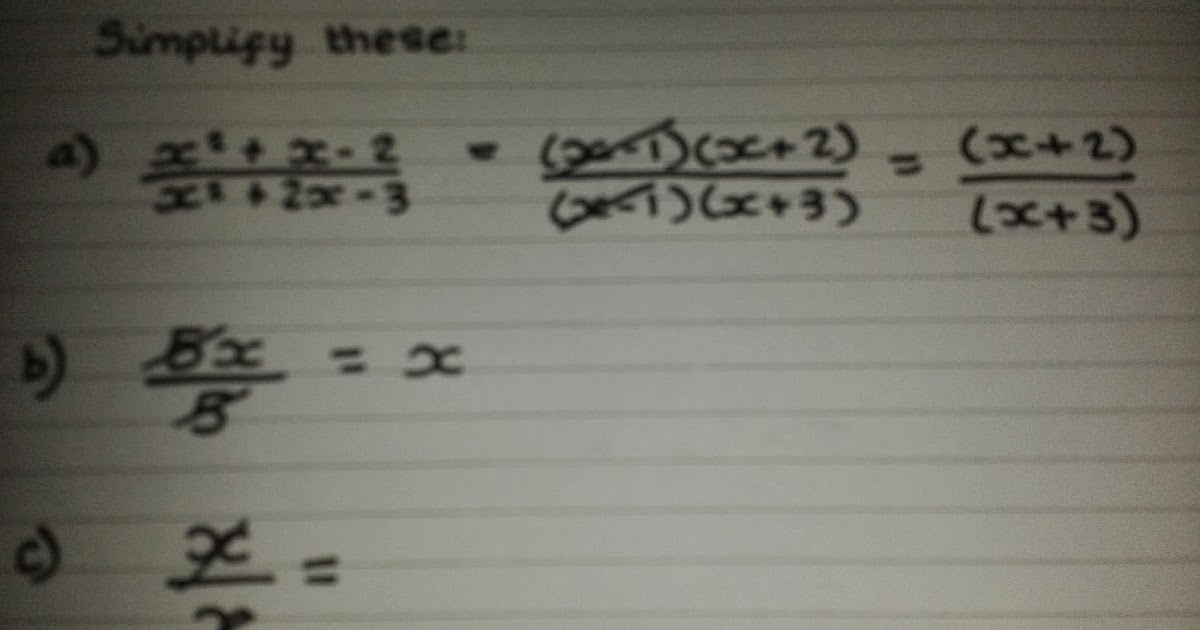 Simplify these:
a) x² + x - 2 / x² + 2x - 3 = (x-1)(x+2) / (x-1)(x+3) = (x+2) / (x+3)
b) 5x / 5 = x
c) x / x =